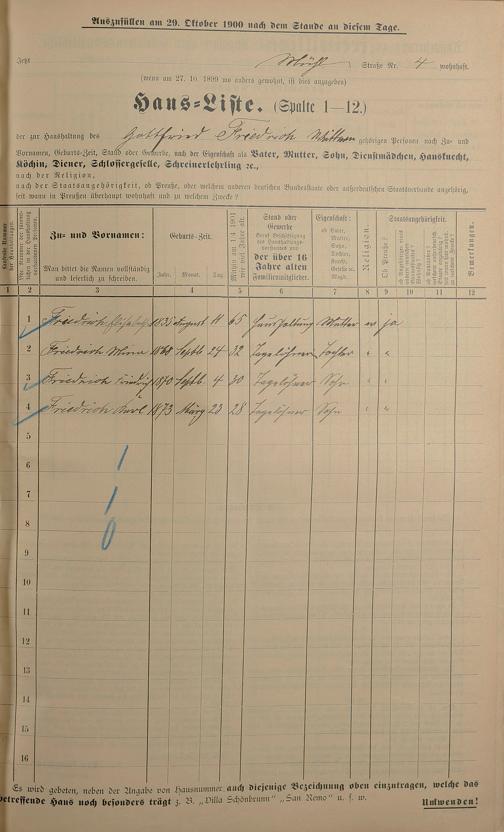 Auszufüllen am 29. Oktober 1900 nach dem Stande an diesem Tage.
Jetzt Mühl Straße Nr. 4 wohnhaft.
(wenn am 27. 10. 1899 wo anders gewohnt, ist dies anzugeben)
Haus-Liste. (Spalte 1—12.)
der zur Haushaltung des Gottfried Friedrich Wittwe gehörigen Personen nach Zu- und
Vornamen, Geburts-Zeit, Stand oder Gewerbe, nach der Eigenschaft als Vater, Mutter, Sohn, Dienstmädchen, Hausknecht,
Köchin, Diener, Schlossergeselle, Schreinerlehrling ꝛc.,
nach der Religion,
nach der Staatsangehörigkeit, ob Preuße, oder welchem anderen deutschen Bundesstaate oder außerdeutschen Staatsverbande angehörig,
seit wann in Preußen überhaupt wohnhaft und zu welchem Zwecke?
Zu- und Vornamen:
Man bittet die Namen vollständig und leserlich zu schreiben.
Geburts-Zeit.
Jahr. Monat. Tag.
Mithin am 1/4 1901 wie viel Jahre alt.
Stand oder Gewerbe
der über 16 Jahre alten Familienmitglieder.
Eigenschaft:
ob Vater, Mutter, Sohn, Tochter, Knecht, Geselle u. Magd.
Religion.
Staatsangehörigkeit.
Ob Preuße?
Bemerkungen.
1 2 3 4 5 6 7 8 9 10 11 12
1 Friedrich Elisabeth 1835 August 11 65 Haushaltung Mutter ev ja
2 Friedrich Mina 1868 Septb 24 32 Tagelöhnerin Tochter " "
3 Friedrich Friedrich 1870 Septb. 4 30 Tagelöhner Sohn " "
4 Friedrich Karl 1873 März 23 28 Tagelöhner Sohn " "
5
6 1
7 1
8 0
9
10
11
12
13
14
15
16
Es wird gebeten, neben der Angabe von Hausnummer auch diejenige Bezeichnung oben einzutragen, welche das
betreffende Haus noch besonders trägt z. B. „Villa Schönbrunn" „San Remo" u. s. w. Umwenden!